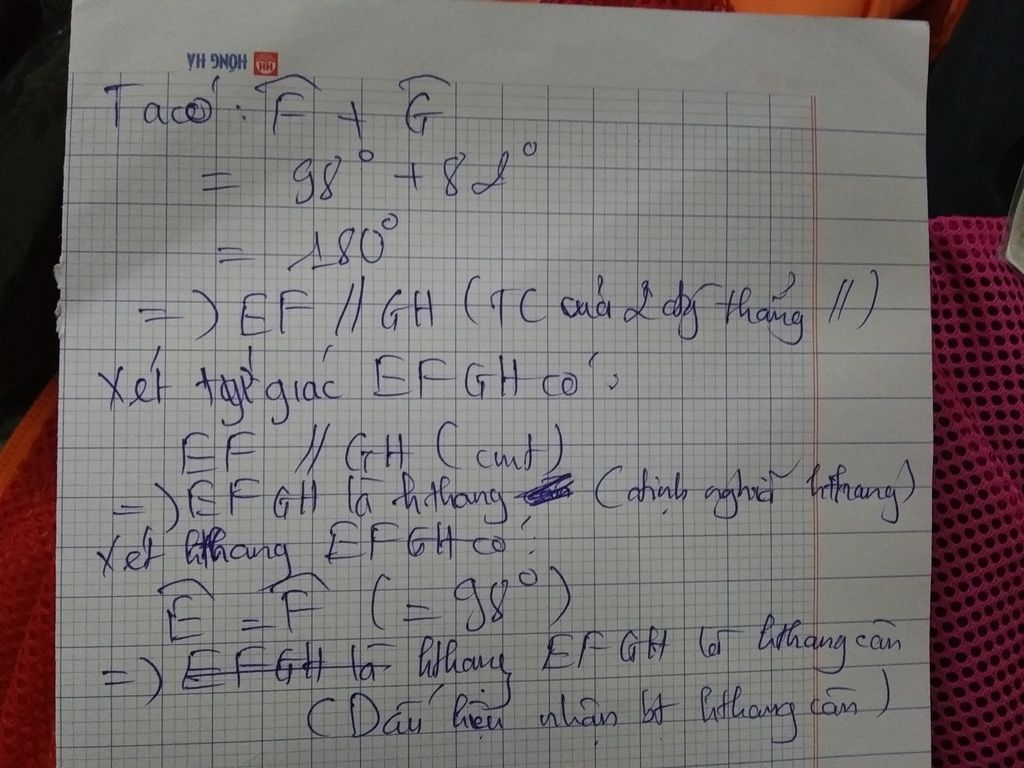 HỒNG HÀ
Ta có: F + G
= 98° + 82°
= 180°
=) EF // GH (TC của 2 đg thẳng //)
Xét tứ giác EFGH có:
EF // GH (cmt)
=) EFGH là hthang (định nghĩa hthang)
Xét hthang EFGH có:
E = F (= 98°)
=) EFGH là hthang EFGH là hthang cân
(Dấu hiệu nhận bt hthang cân)